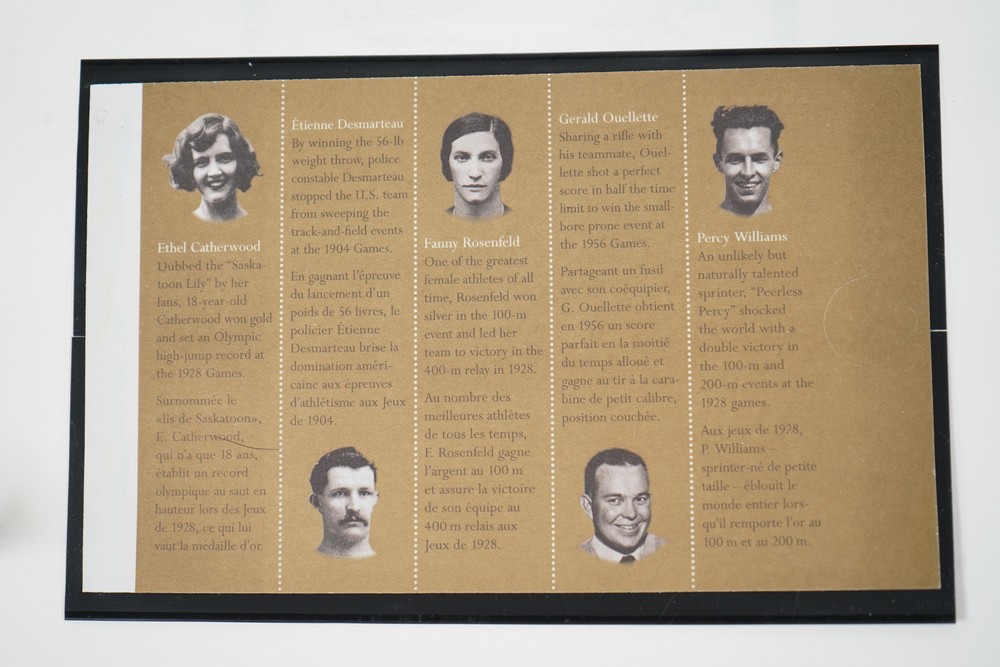 Ethel Catherwood
Dubbed the “Saska-
toon Lily” by her
fans, 18-year-old
Catherwood won gold
and set an Olympic
high-jump record at
the 1928 Games.
Surnommée le
«lis de Saskatoon»,
E. Catherwood,
qui n'a que 18 ans,
établit un record
olympique au saut en
hauteur lors des Jeux
de 1928, ce qui lui
vaut la médaille d'or.
Étienne Desmarteau
By winning the 56-lb
weight throw, police
constable Desmarteau
stopped the U.S. team
from sweeping the
track-and-field events
at the 1904 Games.
En gagnant l'épreuve
du lancement d'un
poids de 56 livres, le
policier Étienne
Desmarteau brise la
domination améri-
caine aux épreuves
d'athlétisme aux Jeux
de 1904.
Fanny Rosenfeld
One of the greatest
female athletes of all
time, Rosenfeld won
silver in the 100-m
event and led her
team to victory in the
400-m relay in 1928.
Au nombre des
meilleures athlètes
de tous les temps,
F. Rosenfeld gagne
l'argent au 100 m
et assure la victoire
de son équipe au
400 m relais aux
Jeux de 1928.
Gerald Ouellette
Sharing a rifle with
his teammate, Ouel-
lette shot a perfect
score in half the time
limit to win the small-
bore prone event at
the 1956 Games.
Partageant un fusil
avec son coéquipier,
G. Ouellette obtient
en 1956 un score
parfait en la moitié
du temps alloué et
gagne au tir à la cara-
bine de petit calibre,
position couchée.
Percy Williams
An unlikely but
naturally talented
sprinter, “Peerless
Percy” shocked
the world with a
double victory in
the 100-m and
200-m events at the
1928 games.
Aux jeux de 1928,
P. Williams –
sprinter-né de petite
taille – éblouit le
monde entier lors-
qu'il remporte l'or au
100 m et au 200 m.